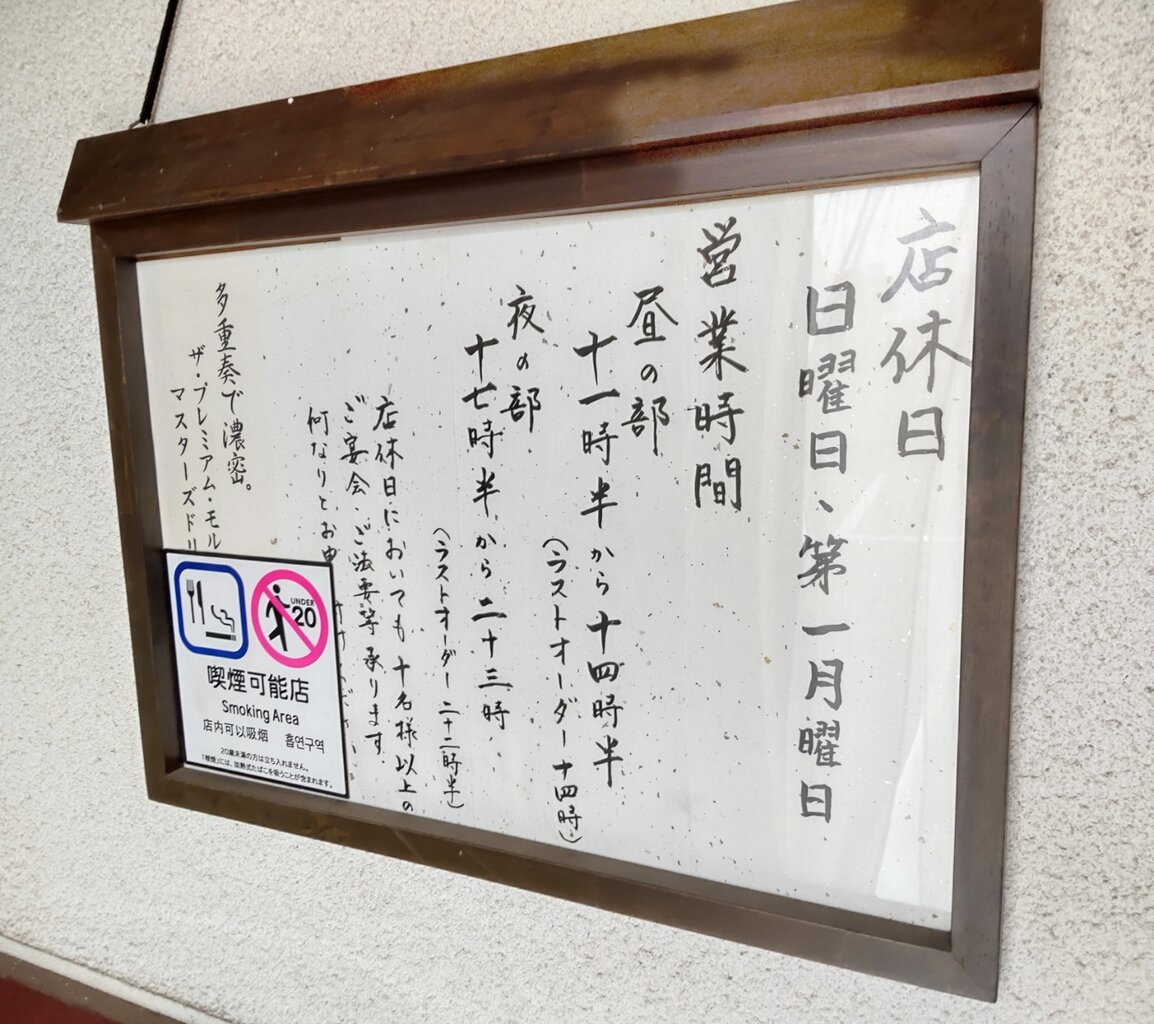 店休日
日曜日、第一月曜日
営業時間
昼の部
十一時半から十四時半
(ラストオーダー十四時)
夜の部
十七時半から二十三時
(ラストオーダー二十二時半)
店休日においても十名様以上の
ご宴会・ご法要等承ります。
何なりとお申
多重奏で濃密。
ザ・プレミアム・モル
マスターズドリ
UNDER
20
喫煙可能店
Smoking Area
店内可以吸烟 흡연구역
20歳未満の方は立ち入れません。
「喫煙」には、加熱式たばこを吸うことが含まれます。